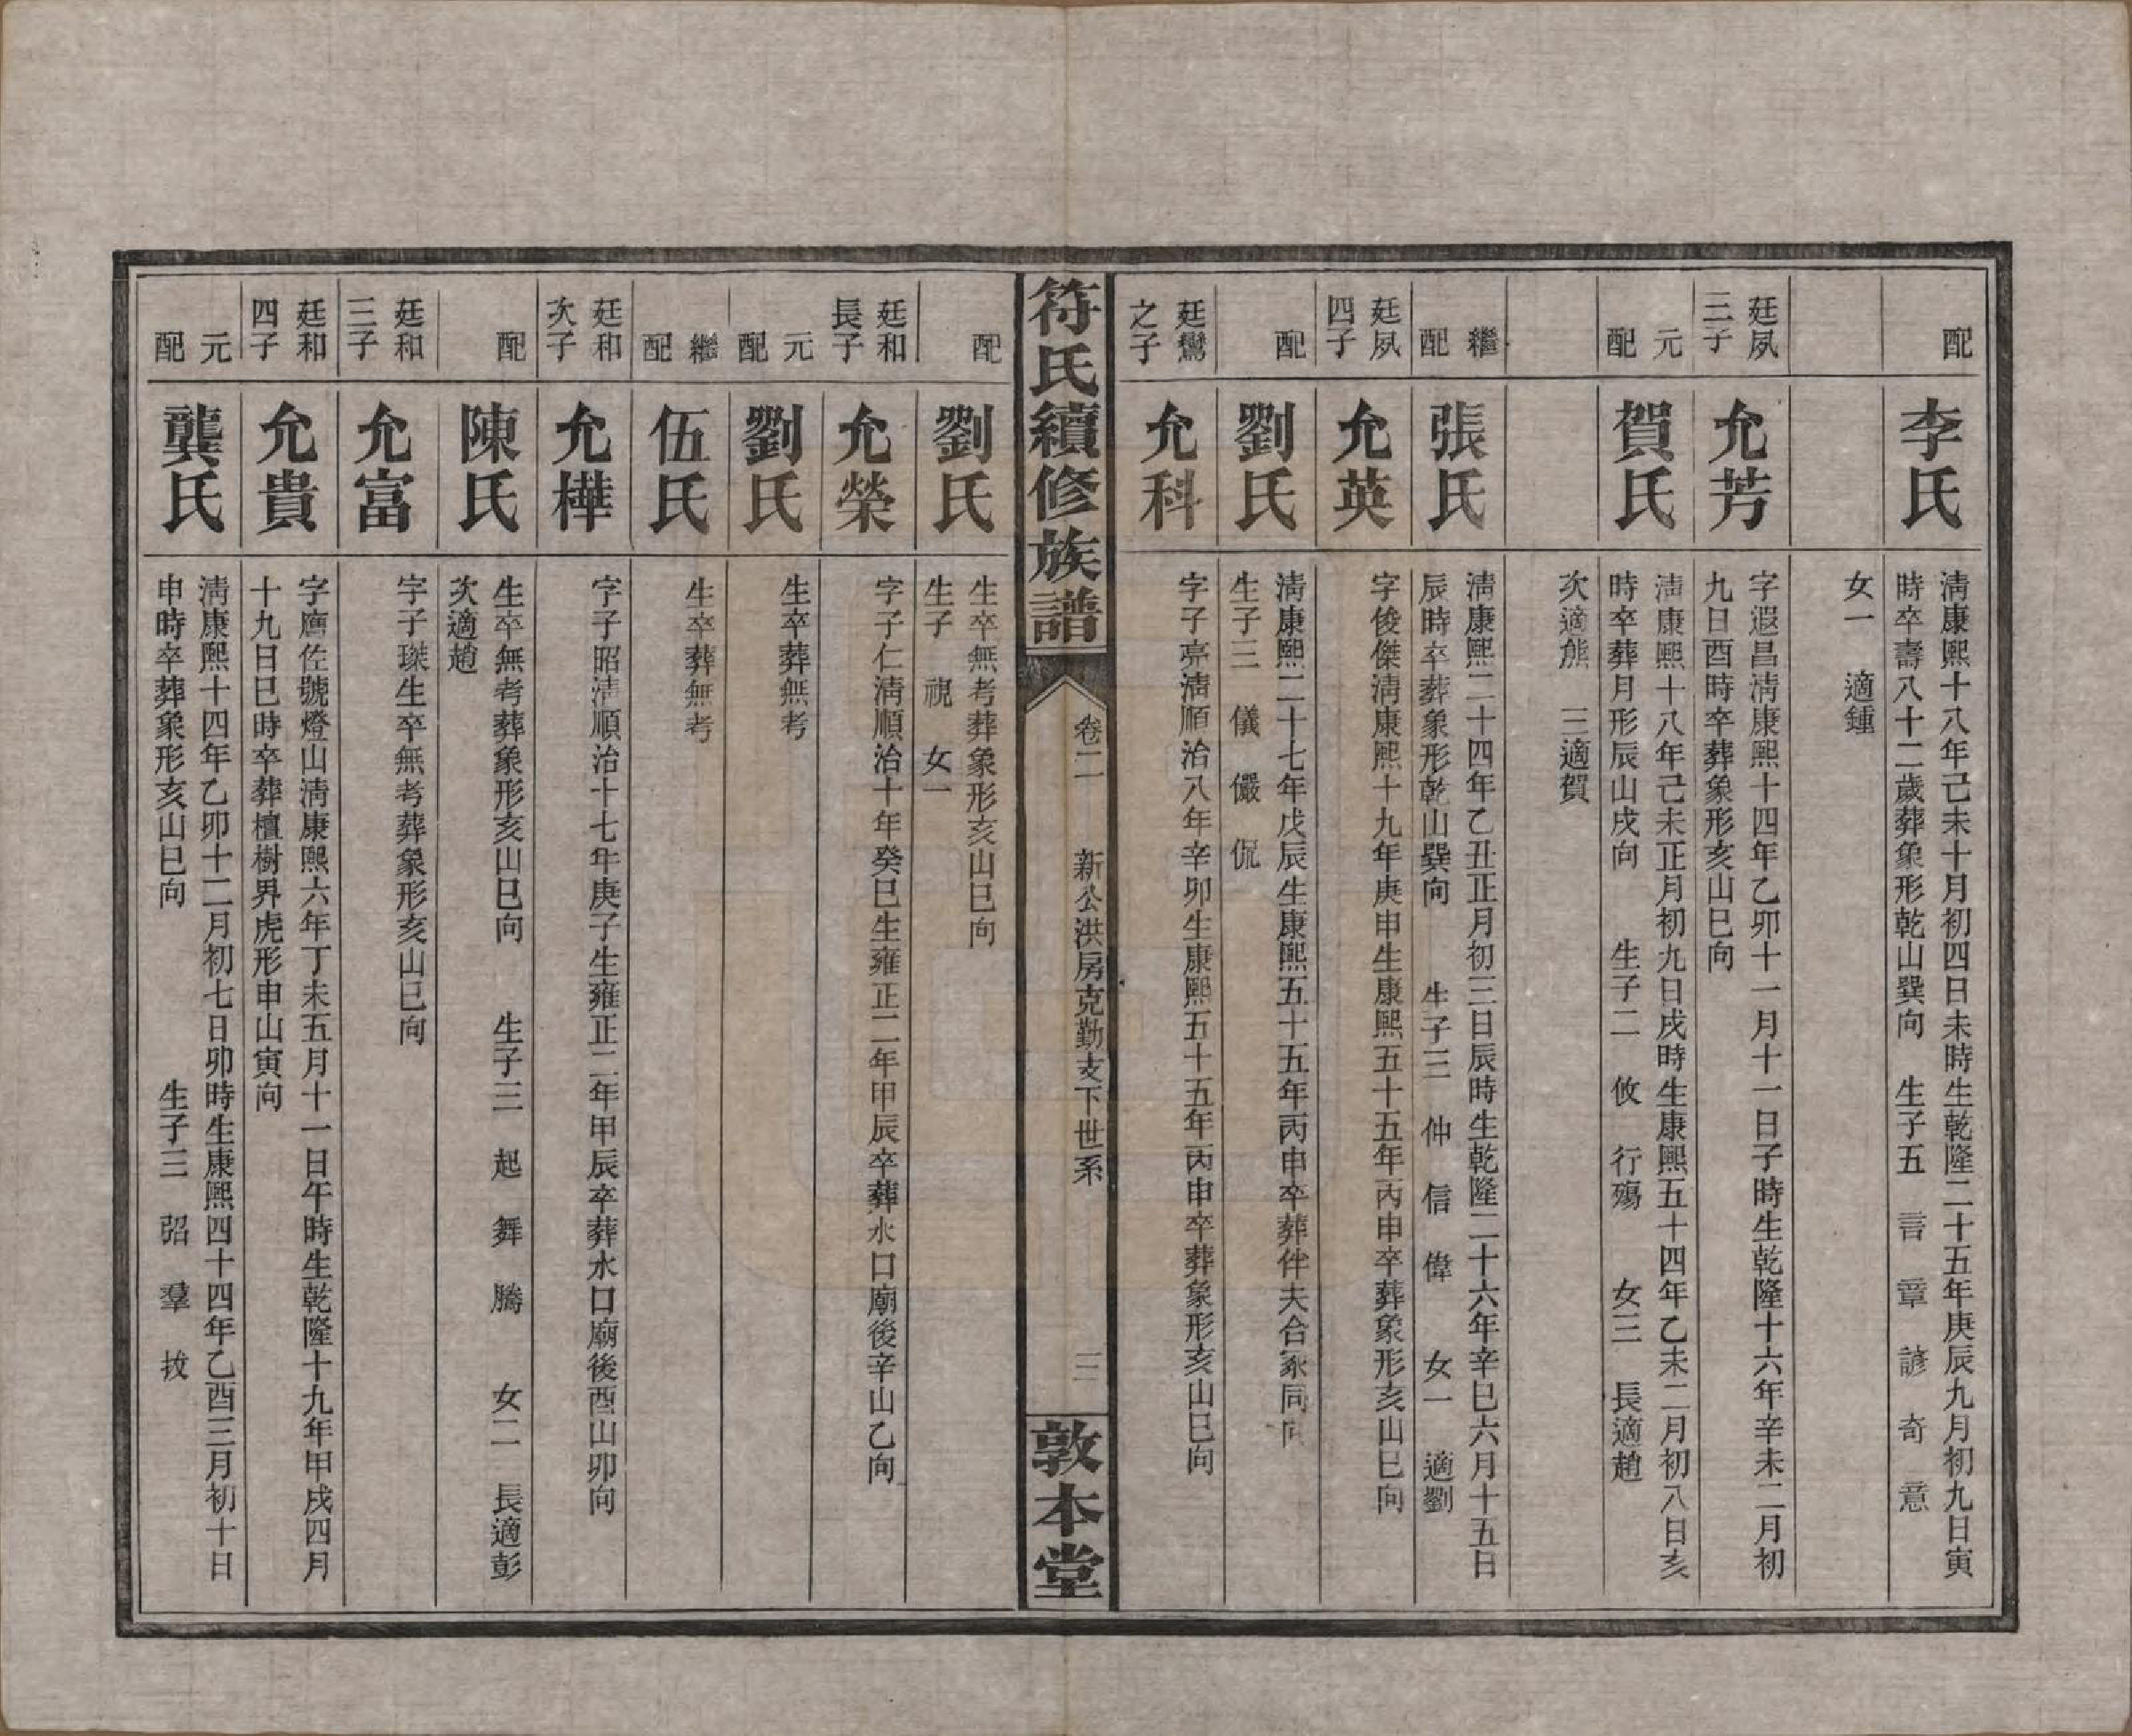 配
李氏
淸康熙十八年己未十月初四日未時生乾隆二十五年庚辰九月初九日寅
時卒壽八十二歲葬象形乾山巽向 生子五 言 章 諺 奇 意
女一 適鍾
廷夙
三子
允芳
字遐昌淸康熙十四年乙卯十一月十一日子時生乾隆十六年辛未二月初
九日酉時卒葬象形亥山巳向
元
配
賀氏
淸康熙十八年己未正月初九日戌時生康熙五十四年乙未二月初八日亥
時卒葬月形辰山戌向 生子二 攸 行殤 女三 長適趙
次適熊 三適賀
繼
配
張氏
淸康熙二十四年乙丑正月初三日辰時生乾隆二十六年辛巳六月十五日
辰時卒葬象形乾山巽向 生子三 仲 信 偉 女一 適劉
廷夙
四子
允英
字俊傑淸康熙十九年庚申生康熙五十五年丙申卒葬象形亥山巳向
配
劉氏
淸康熙二十七年戊辰生康熙五十五年丙申卒葬伴夫合冢同向
生子三 儀 儼 侃
廷鸞
之子
允科
字子亮淸順治八年辛卯生康熙五十五年丙申卒葬象形亥山巳向
符氏續修族譜
卷二
新公洪房克勤支下世系
三
敦本堂
配
劉氏
生卒無考葬象形亥山巳向
生子 視 女一
廷和
長子
允榮
字子仁淸順治十年癸巳生雍正二年甲辰卒葬水口廟後辛山乙向
元
配
劉氏
生卒葬無考
繼
配
伍氏
生卒葬無考
廷和
次子
允樺
字子昭淸順治十七年庚子生雍正二年甲辰卒葬水口廟後酉山卯向
配
陳氏
生卒無考葬象形亥山巳向 生子三 起 舞 騰 女二 長適彭
次適趙
廷和
三子
允富
字子琛生卒無考葬象形亥山巳向
廷和
四子
允貴
字廌佐號燈山淸康熙六年丁未五月十一日午時生乾隆十九年甲戌四月
十九日巳時卒葬檀樹界虎形申山寅向
元
配
龔氏
淸康熙十四年乙卯十二月初七日卯時生康熙四十四年乙酉三月初十日
申時卒葬象形亥山巳向 生子三 弨 羣 拔